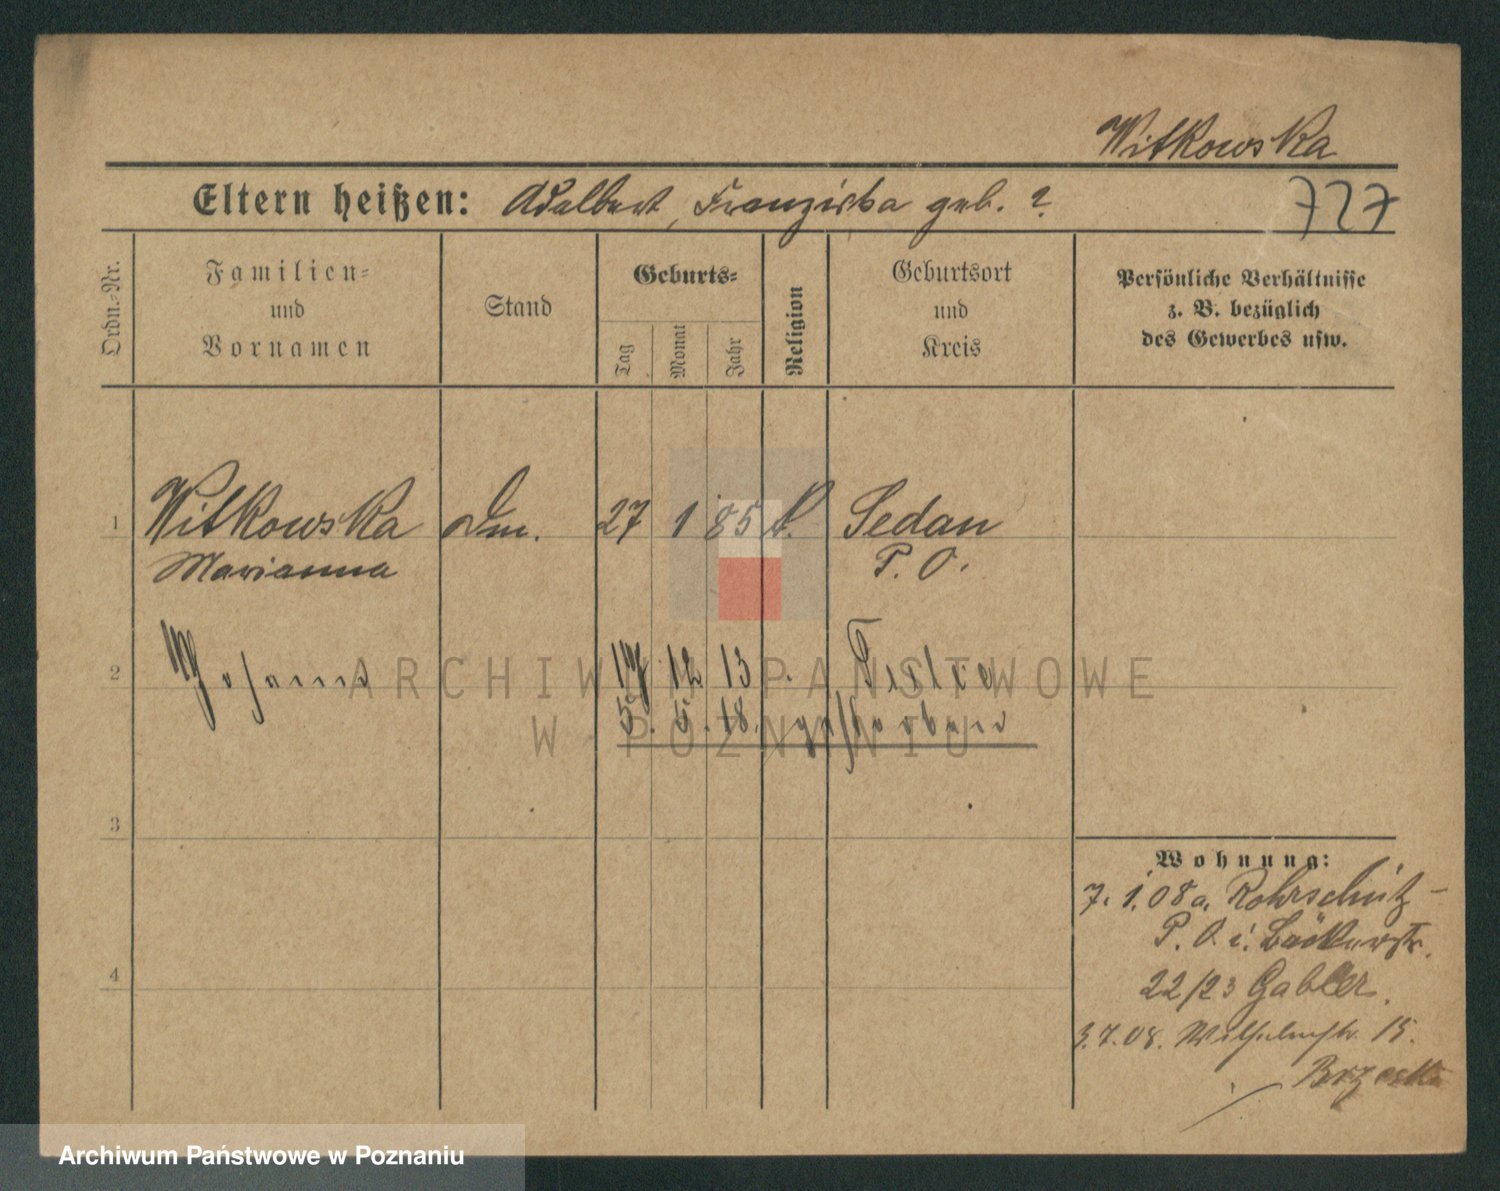 Witkowska
Eltern heißen: Adalbert, Franziska geb. ?
727
Ordn.-Nr.
Familien-
und
Vornamen
Stand
Geburts-
Tag
Monat
Jahr
Religion
Geburtsort
und
Kreis
Persönliche Verhältnisse
z. B. bezüglich
des Gewerbes usw.
1 Witkowska Dm. 27 1 85 k. Sedan
Marianna P. O.
2 Johann 17 12 13
5. 5. 18. gestorben
3
4
Wohnung:
7. 1. 08 a. Rohrschütz-
P. O. i. Bäckerstr.
22/23 Gabler.
3.7.08. Wilhelmstr. 15.
ARCHIWUM PAŃSTWOWE
W POZNANIU
Archiwum Państwowe w Poznaniu